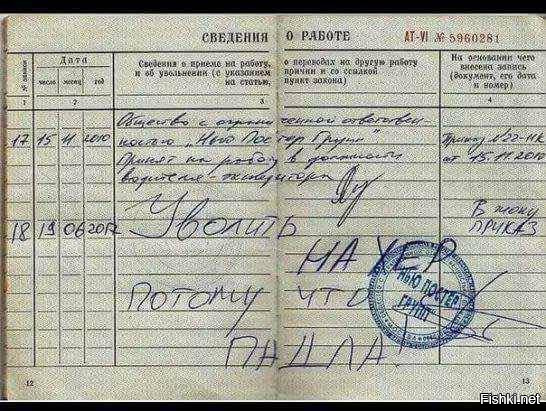 СВЕДЕНИЯ О РАБОТЕ
AT-VI № 5960281
№ записи
Дата
число месяц год
Сведения о приеме на работу, о переводах на другую работу
и об увольнении (с указанием причин и со ссылкой
на статью, пункт закона)
На основании чего
внесена запись
(документ, его дата
и номер)
1 2 3 4
Общество с ограниченной ответствен-
ностью "Нью Постер Групп"
17 15 11 2010 Принят на работу в должности
водителя-экспедитора
Приказ №22-НК
от 15.11.2010
18 19 06 2017 Уволить
НАХЕР
ПОТОМУ ЧТО
ПАДЛА!
В жопу
ПРИКАЗ
НЬЮ ПОСТЕР
ГРУПП
МОСКВА
12 13
Fishki.net